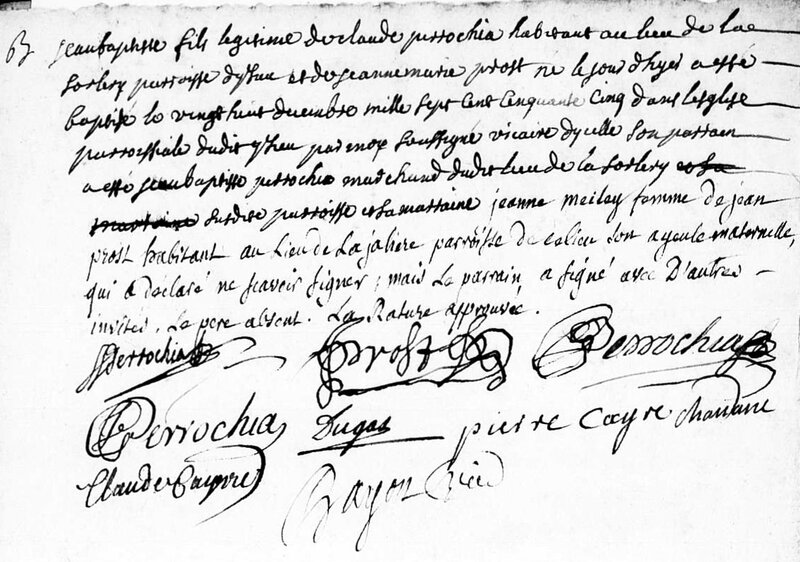 jeanbaptiste fils legitime de claude perrochia habitant au lieu de la
sorlery parroisse dyheu et de jeanne marie prost né le jour dhyer a esté
baptisé le vingt huit decembre mille sept cent cinquante cinq dans leglise
parroissiale dudit yheu par moy soussigné vicaire dycelle son parrain
a esté jeanbaptiste perrochia marchand dudit lieu de la sorlery et sa
marraine susdite parroisse et sa marraine jeanne meiley femme de jean
prost habitant au Lieu de La jaliere parroisse de celieu son ayeule maternelle,
qui a déclaré ne scavoir signer ; mais Le parrain a signé avec D'autres
invités. Le pere absent. La Rature approuvée.
Perrochia Prost Perrochia
Perrochia Dugas pierre Cayre
Claude Cayre
Bayon vic